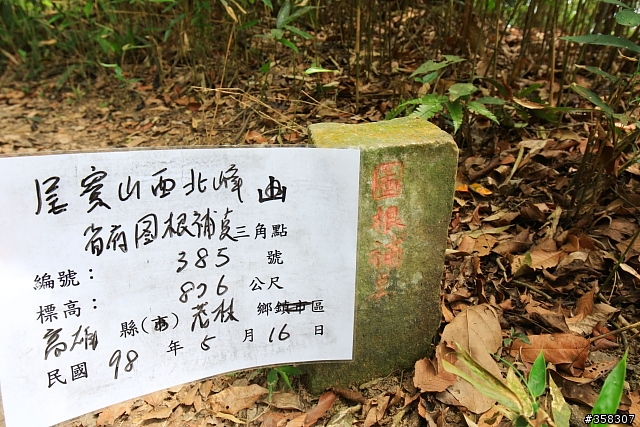 尾寮山西北峰山
省府图根補点三角點
編號：385號
標高：826公尺
高雄縣(市)茂林鄉鎮市區
民國98年5月16日
図根補点
#358307